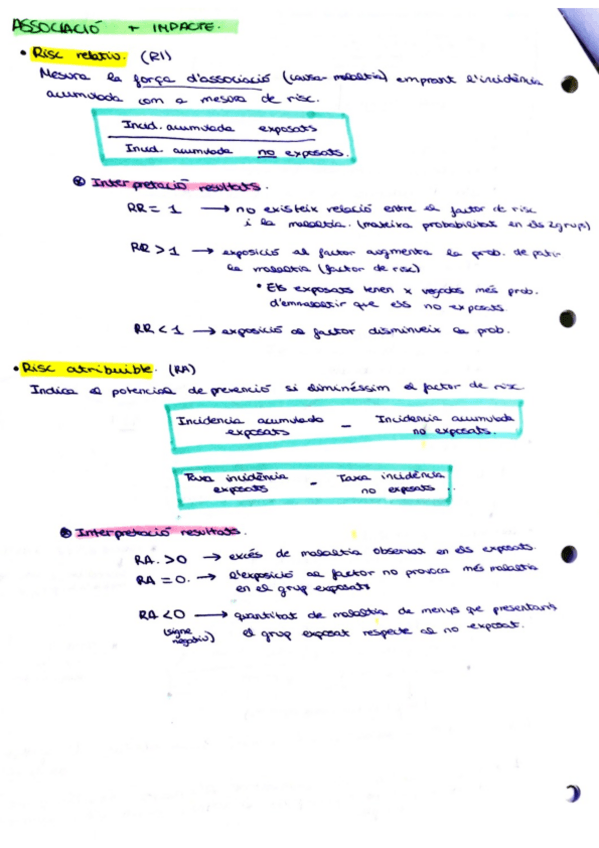 ASSOCIACIÓ + IMPACTE.
• Risc relatiu. (RI)
Mesura la força d'associació (causa-malaltia) emprant l'incidència
acumulada com a mesura de risc.
Incid. acumulada exposats
Incid. acumulada no exposats.
Interpretació resultats.
RR = 1 → no existeix relació entre el factor de risc
i la malaltia. (mateixa probabilitat en els 2 grups)
RR > 1 → exposició al factor augmenta la prob. de patir
la malaltia (factor de risc)
• Els exposats tenen x vegades més prob.
d'emmalaltir que els no exposats
RR < 1 → exposició al factor disminueix la prob.
• Risc atribuible. (RA)
Indica el potencial de prevenció si eliminéssim el factor de risc
Incidencia acumulada exposats – Incidencia acumulada no exposats.
Taxa incidència exposats – Taxa incidència no exposats.
Interpretació resultats.
RA. > 0 → excés de malaltia observat en els exposats.
RA = 0. → l'exposició al factor no provoca més malaltia
en el grup exposats
RA < 0 → quantitat de malaltia de menys que presentarà
(signe negatiu) el grup exposat respecte al no exposat.